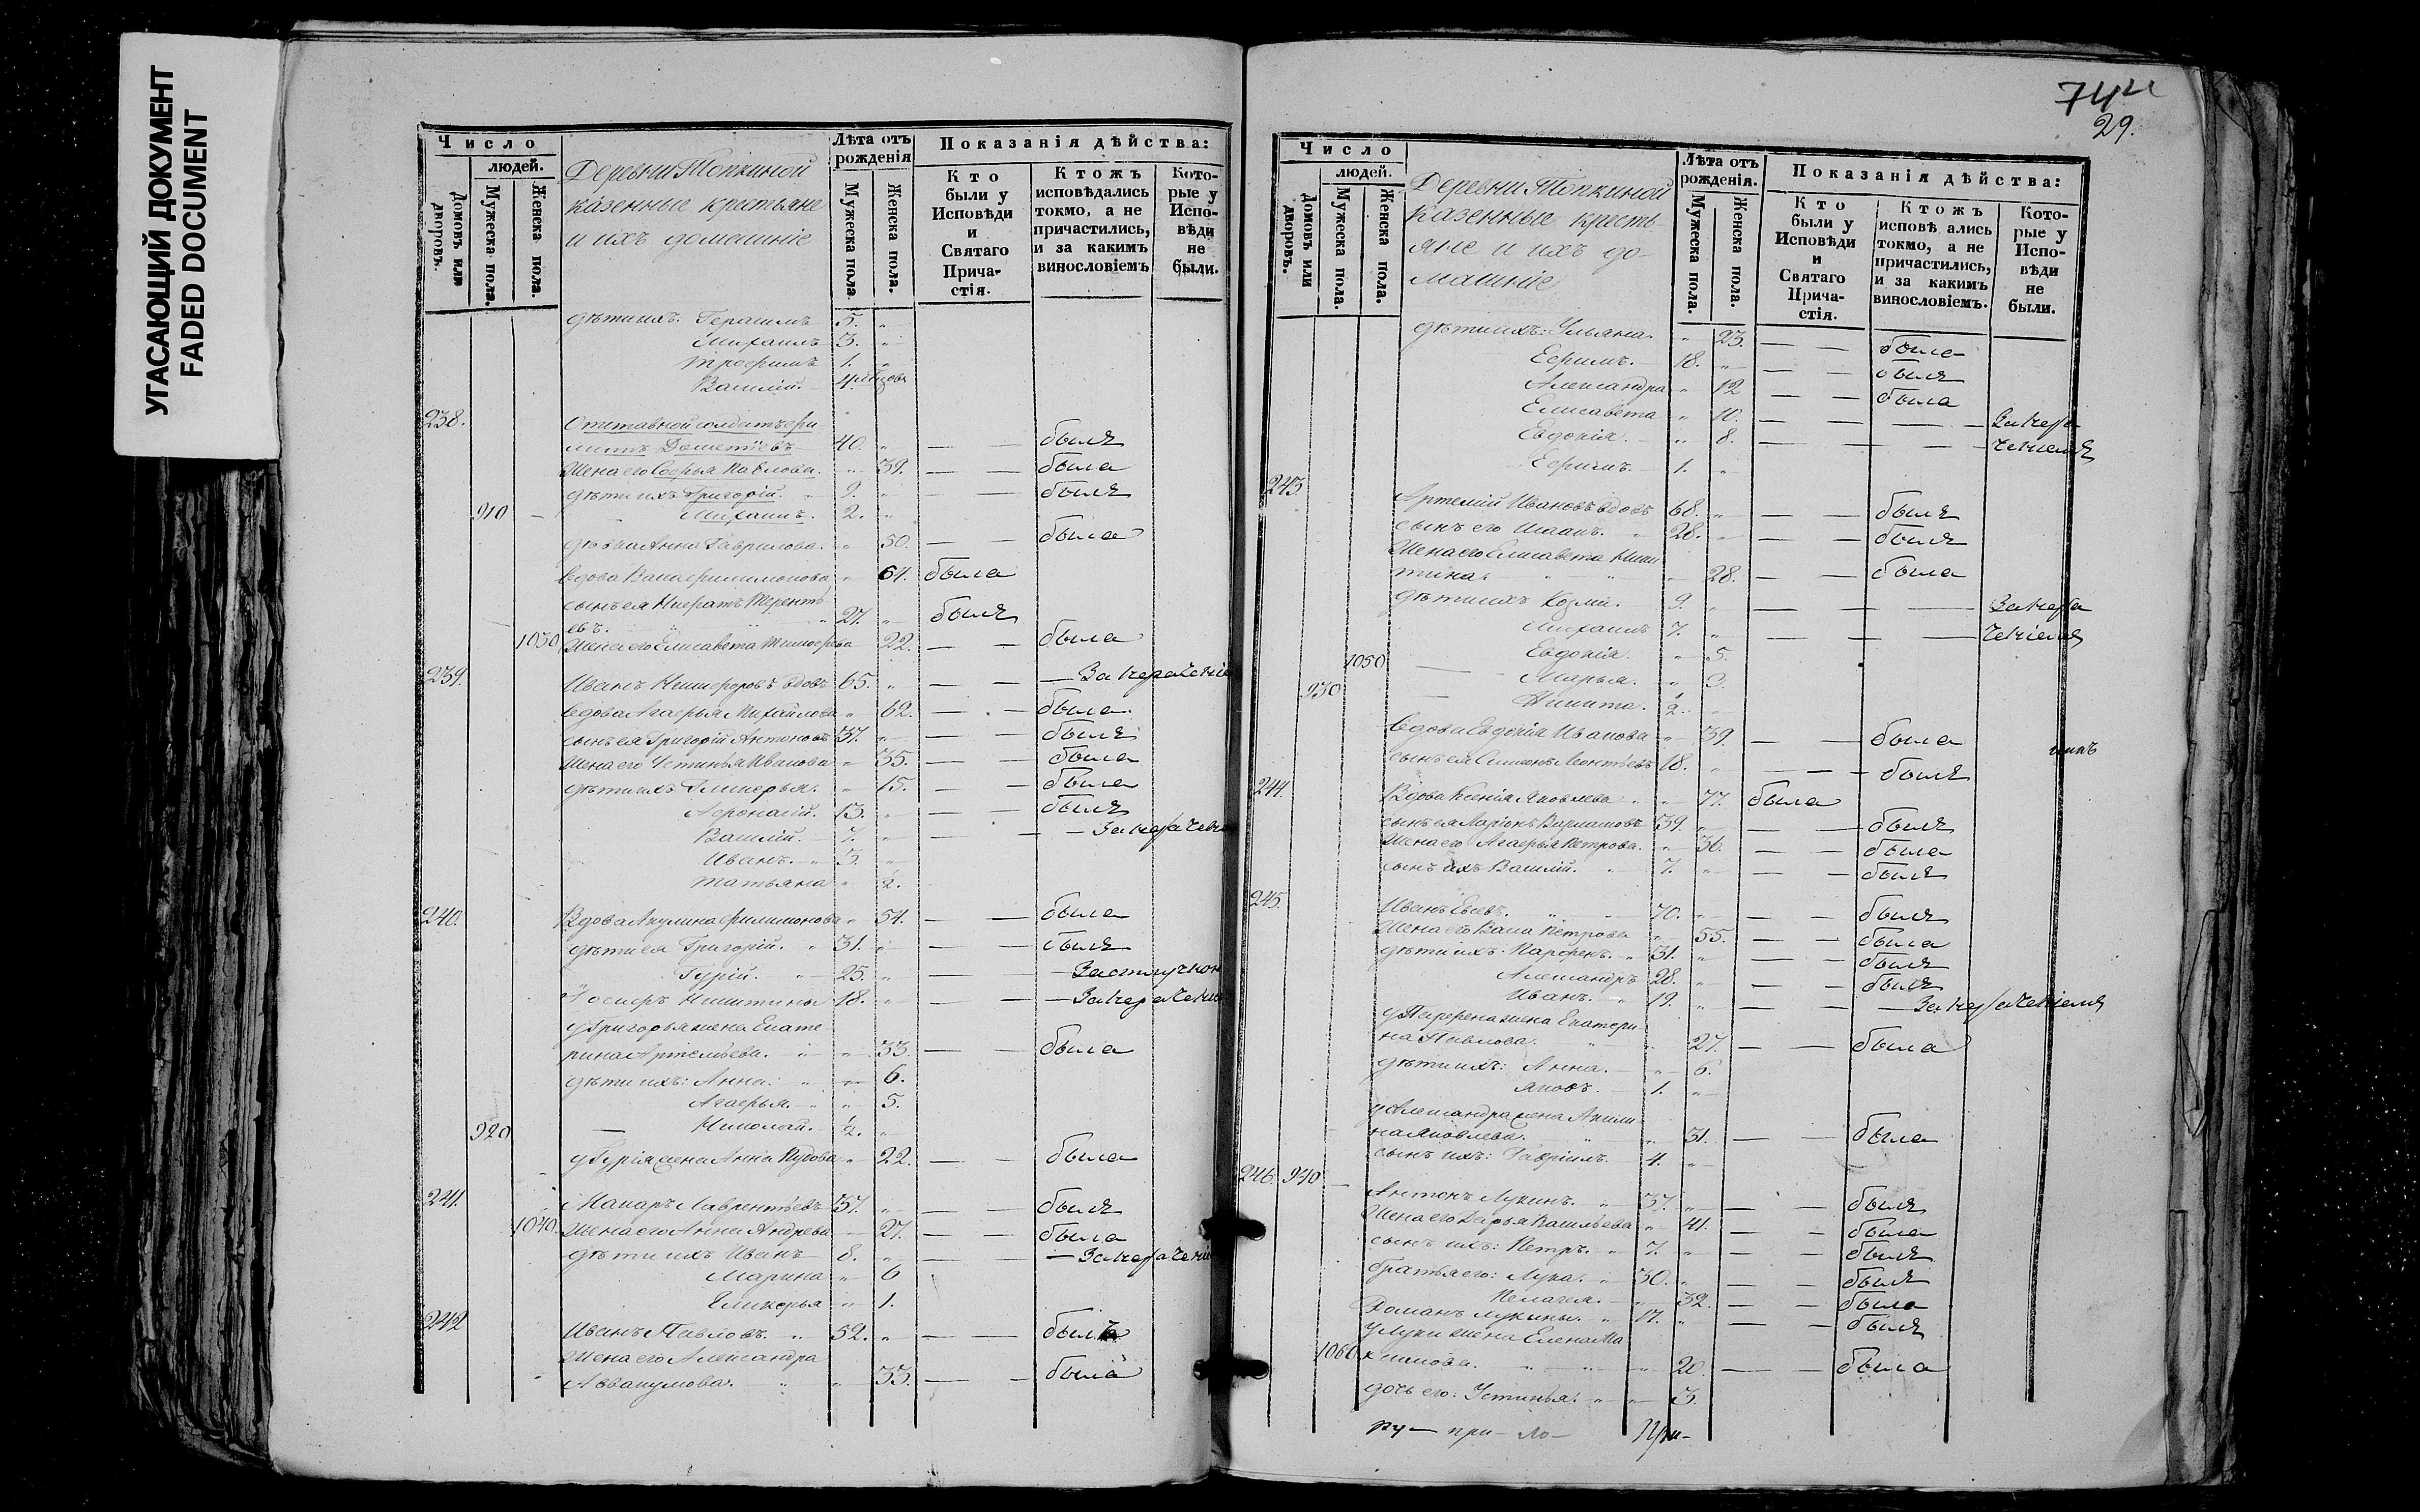 УГАСАЮЩИЙ ДОКУМЕНТ
FADED DOCUMENT
Число
людей.
Домовъ или дворовъ.
Мужеска пола.
Женска пола.
Деревни Топкиной
казенные крестьяне
и ихъ домашніе
Лѣта отъ рожденія
Мужеска пола
Женска пола.
Показанія дѣйства:
Кто были у Исповѣди и Святаго Прича-стія.
Ктожъ исповѣдались токмо, а не причастились, и за какимъ винословіемъ
Кото-рые у Испо-вѣди не были.
дѣти ихъ: Герасимъ 5. "
Михаилъ 3. "
Трофимъ 1. "
Василій. 4 мѣсяцовъ
238.
Отставной солдатъ
40. " — — былъ
Жена его Софья Павлова. " 39. — — была
дѣти ихъ Григорій. " 9. " — — былъ
910 — Михаилъ. 2. "
дѣвка Анна Гаврилова. " 50. — — была
вдова Васса Филимонова " 64. была
сынъ ея Теренть-
евъ. " 27. " былъ
1030 Жена его Елисавета " 22. — — была
239. Иванъ вдовъ 65. " — — —
вдова Агафья Михайлова " 62. — — была.
сынъ ея Григорій Антоновъ 37. " — — былъ
Жена его Устинья Иванова " 35. — — была
дѣти ихъ Гликерья. " 15. — — была
Афонасій. 13. " — — былъ
Василій. 7. " — — —
Иванъ. " 3. "
Татьяна " 1/2.
240. Вдова Акулина Филимонова " 54. — — была
дѣти ея Григорій. " 31. " — — былъ
Гурій. " 25. " — — —
Никитины 18. " — — —
у Григорья жена Екате-
рина Артемьева. " " 33. — — была
дѣти ихъ: Анна. " " 6.
Агафья. " " 5.
920 — Николай. 1/2. "
у Гурія жена Анна " 22. — — была
241. Макаръ Лаврентьевъ 37. " — — былъ
1040. Жена его Анна Андреева " 27. — — была
дѣти ихъ Иванъ 8. " — — —
Марина " 6
Гликерья " 1.
242 Иванъ Павловъ. " 52. " — — былъ
Жена его Александра
Аввакумова. " " 33. — — была
744
29.
Число
людей.
Домовъ или дворовъ.
Мужеска пола.
Женска пола.
Деревни Топкиной
казенные кресть
яне и ихъ до-
машніе
Лѣта отъ рожденія.
Мужеска пола.
Женска пола.
Показанія дѣйства:
Кто были у Исповѣди и Святаго Прича-стія.
Ктожъ исповѣ ались токмо, а не причастились, и за какимъ винословіемъ.
Кото-рые у Испо-вѣди не были.
дѣти ихъ: Ульяна. " 23. — — была
Ефимъ. 18. " — — былъ
Александра " 12 — — была
Елисавета " 10. — — —
Евдокія. " 8. — — —
1. "
243
Артемій Ивановъ вдовъ 68. " — — былъ
сынъ его " 28. " — — былъ
Жена его Елисавета Ники
тина. " " " 28. — — была
дѣти ихъ Козма. 9. " — — —
Михаилъ 7. " — — —
Евдокія. " 5.
1050 — Марья. " 3.
930 — Никита. 1/2. "
вдова Евдокія Иванова " 39. — — была
сынъ ея Леонтьевъ 18. " — — былъ
244. Вдова Ксенія Яковлева " " 77. была
сынъ ея Ларіонъ 39. " — — былъ
Жена его Агафья Петрова. " 36. — — была
сынъ ихъ Василій. " 7. " — — былъ
245.
Иванъ " 70. " — — былъ
Жена его Васса Петрова " 55. — — была
дѣти ихъ: Парфенъ. " 31. " — — былъ
Александръ 28. " — — былъ
Иванъ. " 19. " — — —
у Парфена жена Екатери-
на Павлова. " " 27. — — была
дѣти ихъ: Анна. " 6.
Яковъ. 1. "
у Александра жена Акили
на Яковлева. " " 31. — — была
сынъ ихъ: Гавріилъ. 4. "
246. 940 —
Антонъ Лукинъ. " 37. " — — былъ
Жена его Дарья Васильева " 41. — — была
сынъ ихъ: Петръ. " 7. " — — былъ
братья его: Лука. " 30. " — — былъ
Пелагея. " 32. — — была
Романъ Лукины. " 17. " — — былъ
у Луки жена Елена Ма
1060 ксимова. " " " 20. — — была
дочь его: Устинья. " " 3.